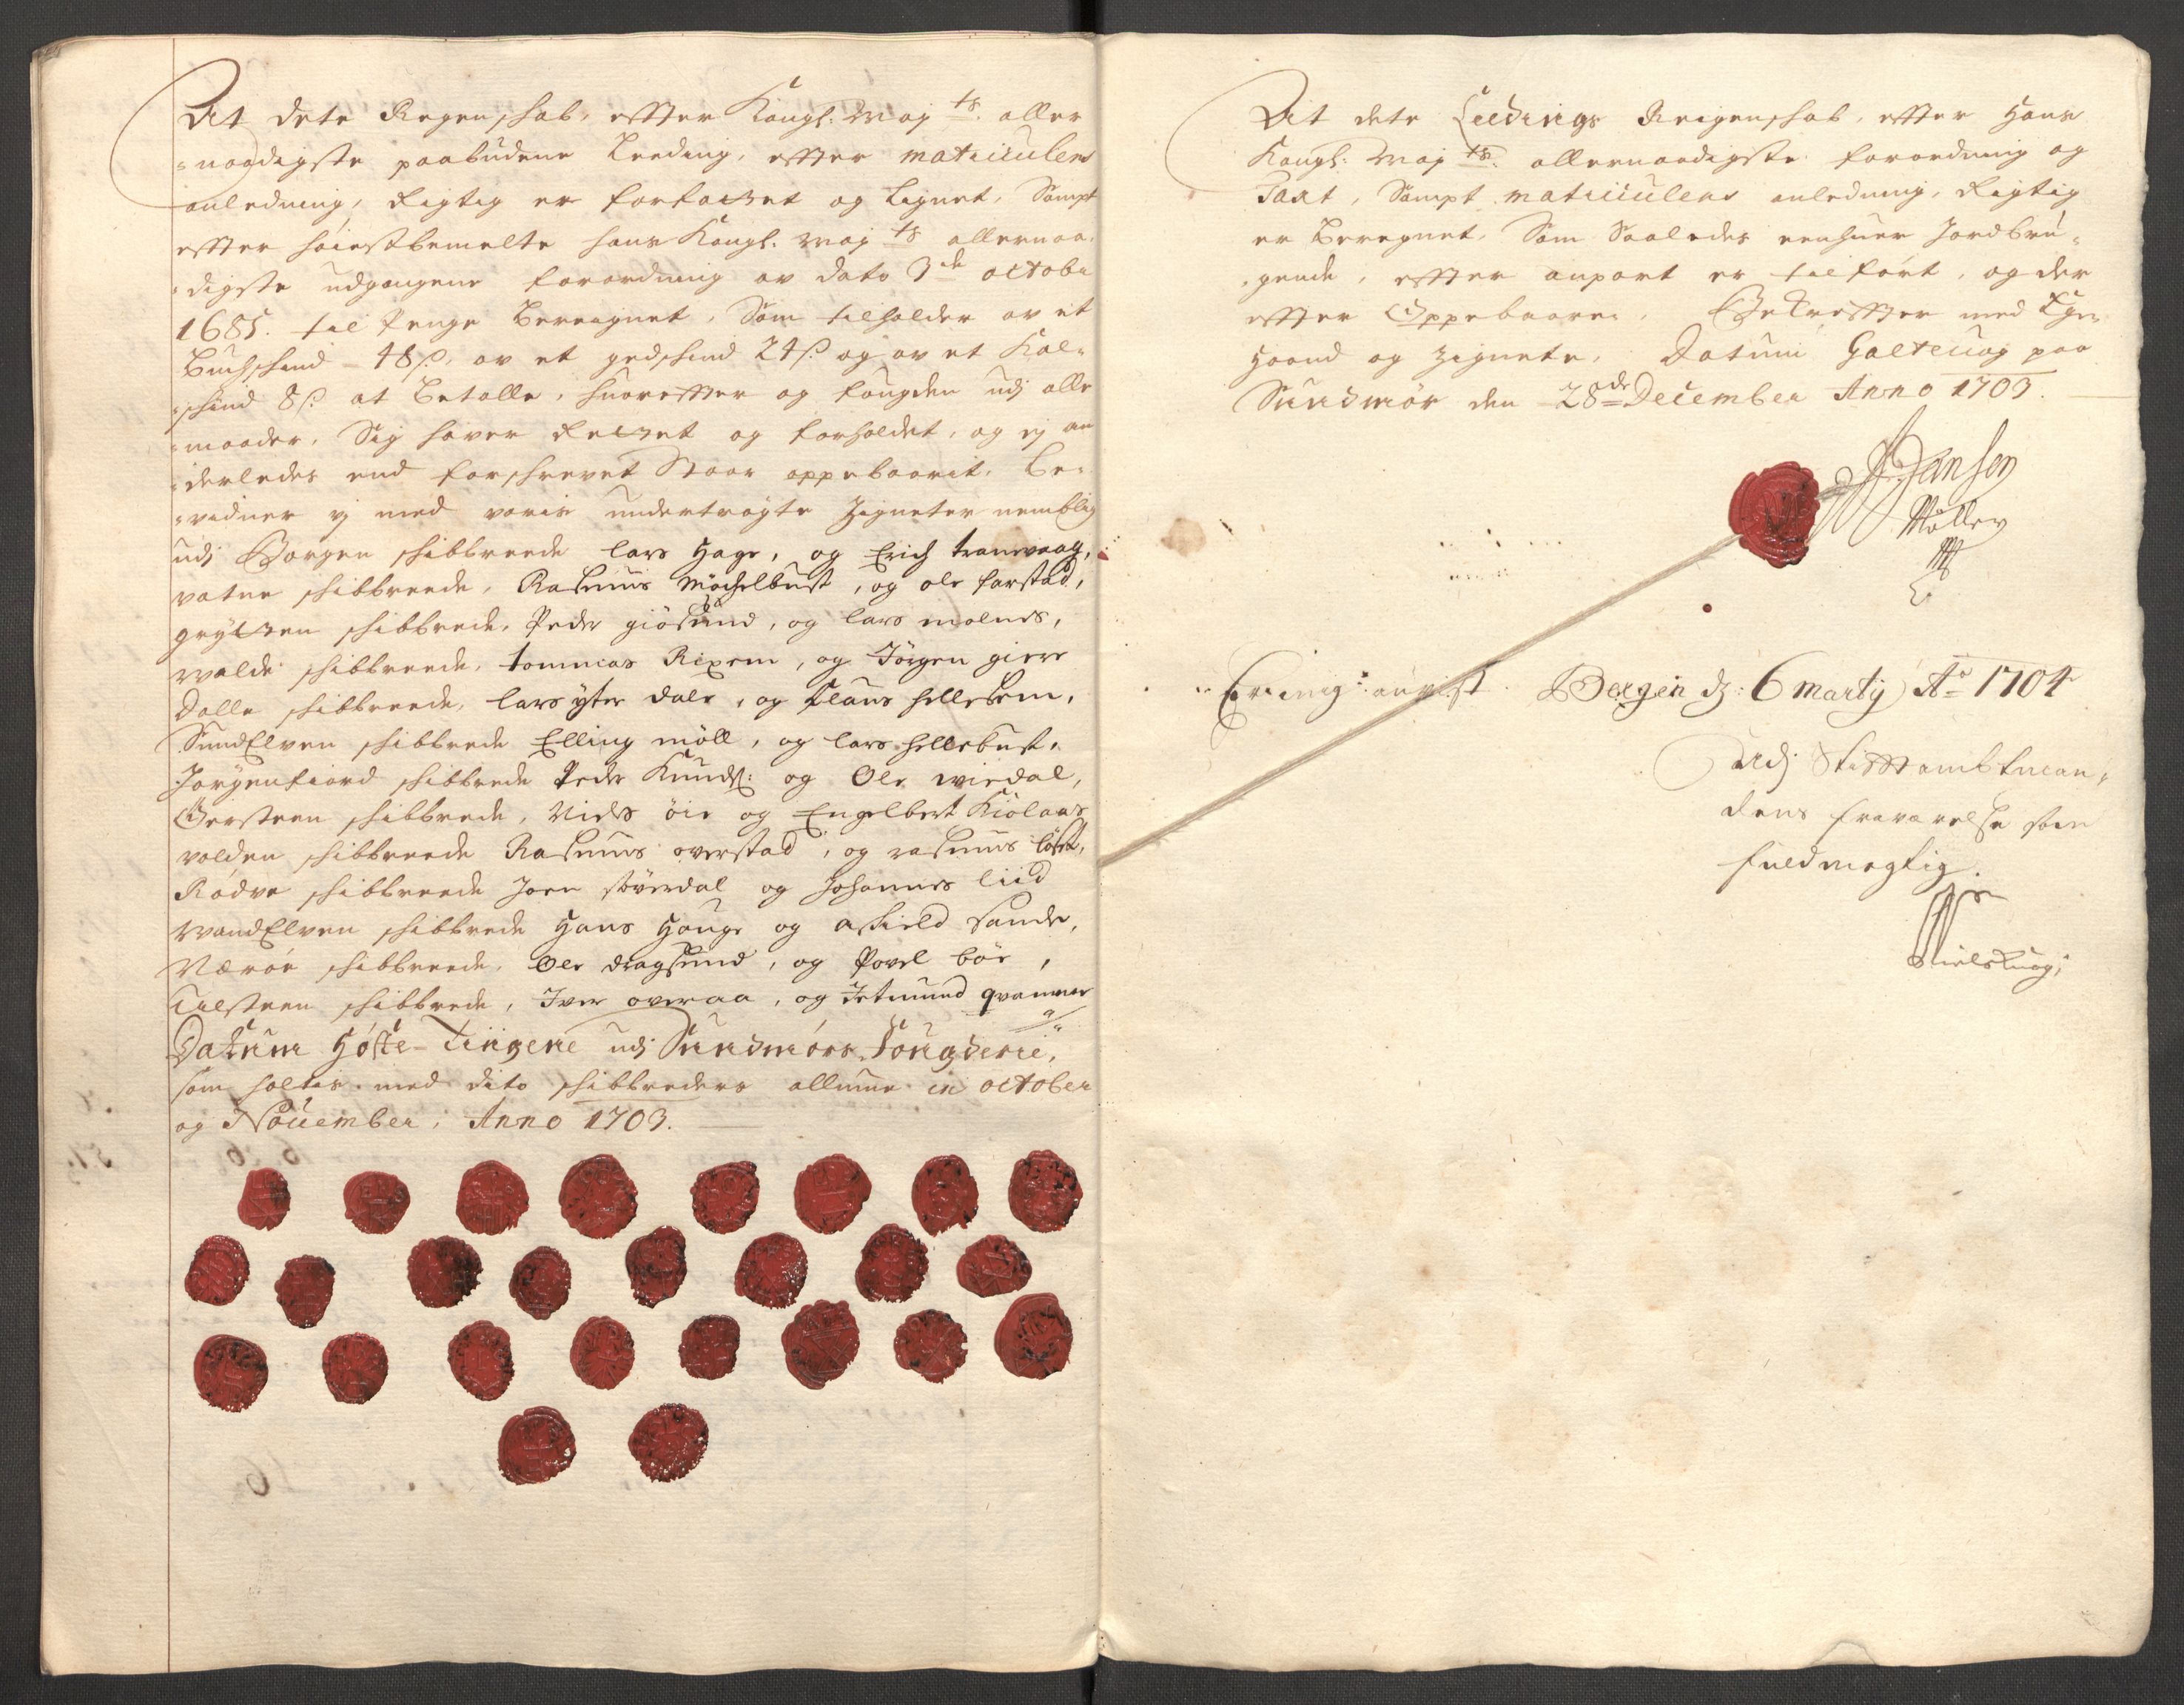 At dete Regenschab, effter Kongl: Maj ts. aller
=naadigste paabudene Leeding, effter matriculens
anledning, Rigtig er forfatzet og Lignet, Sampt
effter höiestbemelte hans Kongl. Maj ts allernaa=
=digste udgangene forordning av dato 3de octobr
1685. til Penge Beregnet, Som tilholder av et
Buchschind 48 s. av et gedschind 24 s. og av et Kal=
=schind 8 s. at betalle, huoreffter og fougden udj alle
=maader, Sig haver Retzet og forholdet, og ej an
=derledes end forschrevet staar oppebaarit, Be=
=vidner vj med voris undertrøgte Zigneter nemblig
udj Borgen schibbreede lars Hage, og Erich tranvaag,
vatne schibbreede, Rasmus Möchelbust, og ole farstad,
grytzen schibbrede, Peder giösund, og lars molnes,
valde schibbreede, tommas Rexem, og Jörgen giere
Dalle schibbreede, lars yter dale, og Claus hellesem,
SundElven schibbrede Elling möll, og lars hellebust,
Jörgenfiord schibbrede Peder Knuds: og Ole viedal,
Oersteen schibbrede, Niels öie og Engelbert Kiölaas
volden schibbreede Rasmus overstad, og rasmus löset,
Rödve schibbreede Joen störedal og Johannes liid
vandElven schibbrede Hans Houge og askield Sande,
Nærøe schibbreede, Ole dragsund, og Povel böe,
Ulsteen schibbrede, Iver overaa, og Jetmund qvamme
Datum Höste-Tingene udj Sundmörs Fougderie,
som holtes med dito schibbreders allmue in october
og November, Anno 1703.
At dete Leedings Reigenschab, effter Hans
Kongl: Maj ts. allernaadigste forordning og
Taxt, Sampt matriculens anledning, Rigtig
er Beregnet, Som Saaledes eenhuer Jordbru=
=gende, effter anpart er tilfört, og der
effter Oppebaaren, Bekreffter med Egen
Haand og Zignete, Datum Galtevog paa
Sundmör den 28de December Anno 1703.
Jansen
Möller
Bergen d: 6 martij Ao 1704
Udj Stifftambtman=
dens fraværelse som
fuldmegtig.